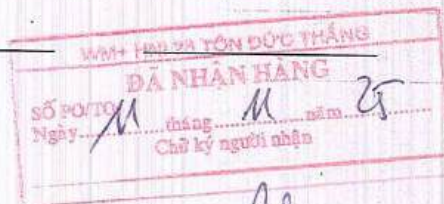 WM+ HNI 28 TÔN ĐỨC THẮNG
ĐÃ NHẬN HÀNG
SỐ PO/TO
Ngày 11 tháng 11 năm 25
Chữ ký người nhận